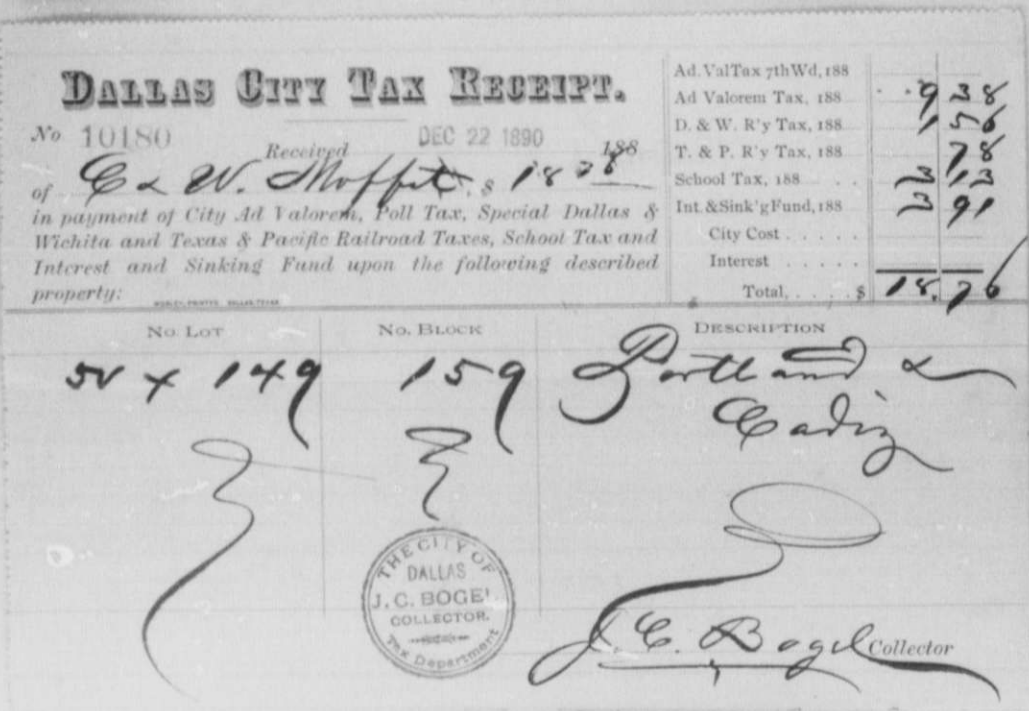 DALLAS CITY TAX RECEIPT.
No 10180 DEC 22 1890
Received 188
of E & W. Moffit, $ 18
in payment of City Ad Valorem, Poll Tax, Special Dallas &
Wichita and Texas & Pacific Railroad Taxes, School Tax and
Interest and Sinking Fund upon the following described
property:
Ad. Val Tax 7th Wd, 188
Ad Valorem Tax, 188 9 38
D. & W. R'y Tax, 188 1 56
T. & P. R'y Tax, 188 78
School Tax, 188 3 13
Int. & Sink'g Fund, 188 3 91
City Cost
Interest
Total, $ 18.76
No. LOT No. BLOCK DESCRIPTION
50 x 149 159 Portland &
Cadiz
THE CITY OF
DALLAS
J. C. BOGEL
COLLECTOR.
Tax Department
J. C. Bogel Collector